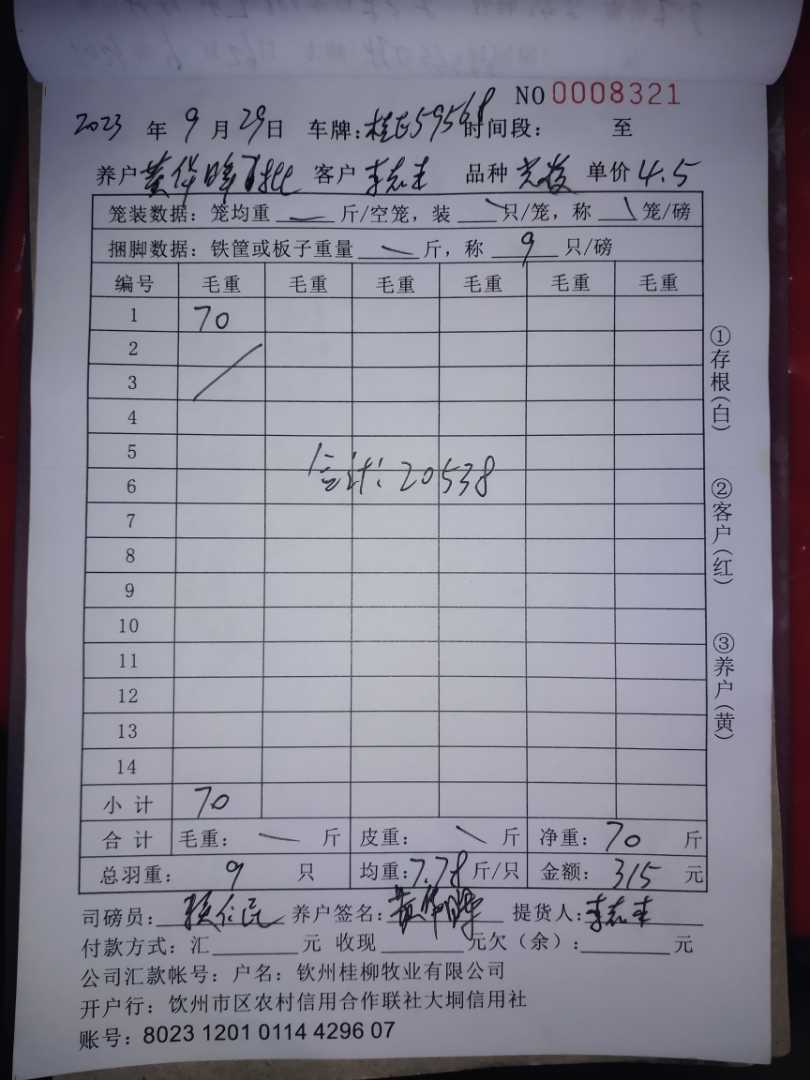 NO 0008321
2023 年 9 月 29 日 车牌: 59568 时间段: 至
养户 黄华晖 客户 李志圭 品种 单价 4.5
笼装数据: 笼均重 斤/空笼, 装 只/笼, 称 笼/磅
捆脚数据: 铁筐或板子重量 斤, 称 9 只/磅
编号 毛重 毛重 毛重 毛重 毛重 毛重
1 70
2
3
4
5
6
合计: 20538
7
8
9
10
11
12
13
14
小计 70
合计 毛重: 斤 皮重: 斤 净重: 70 斤
总羽重: 9 只 均重: 7.78 斤/只 金额: 315 元
司磅员: 养户签名: 黄华晖 提货人: 李志圭
付款方式: 汇 元 收现 元欠(余): 元
公司汇款帐号: 户名: 钦州桂柳牧业有限公司
开户行: 钦州市区农村信用合作联社大垌信用社
账号: 8023 1201 0114 4296 07
①存根(白)
②客户(红)
③养户(黄)